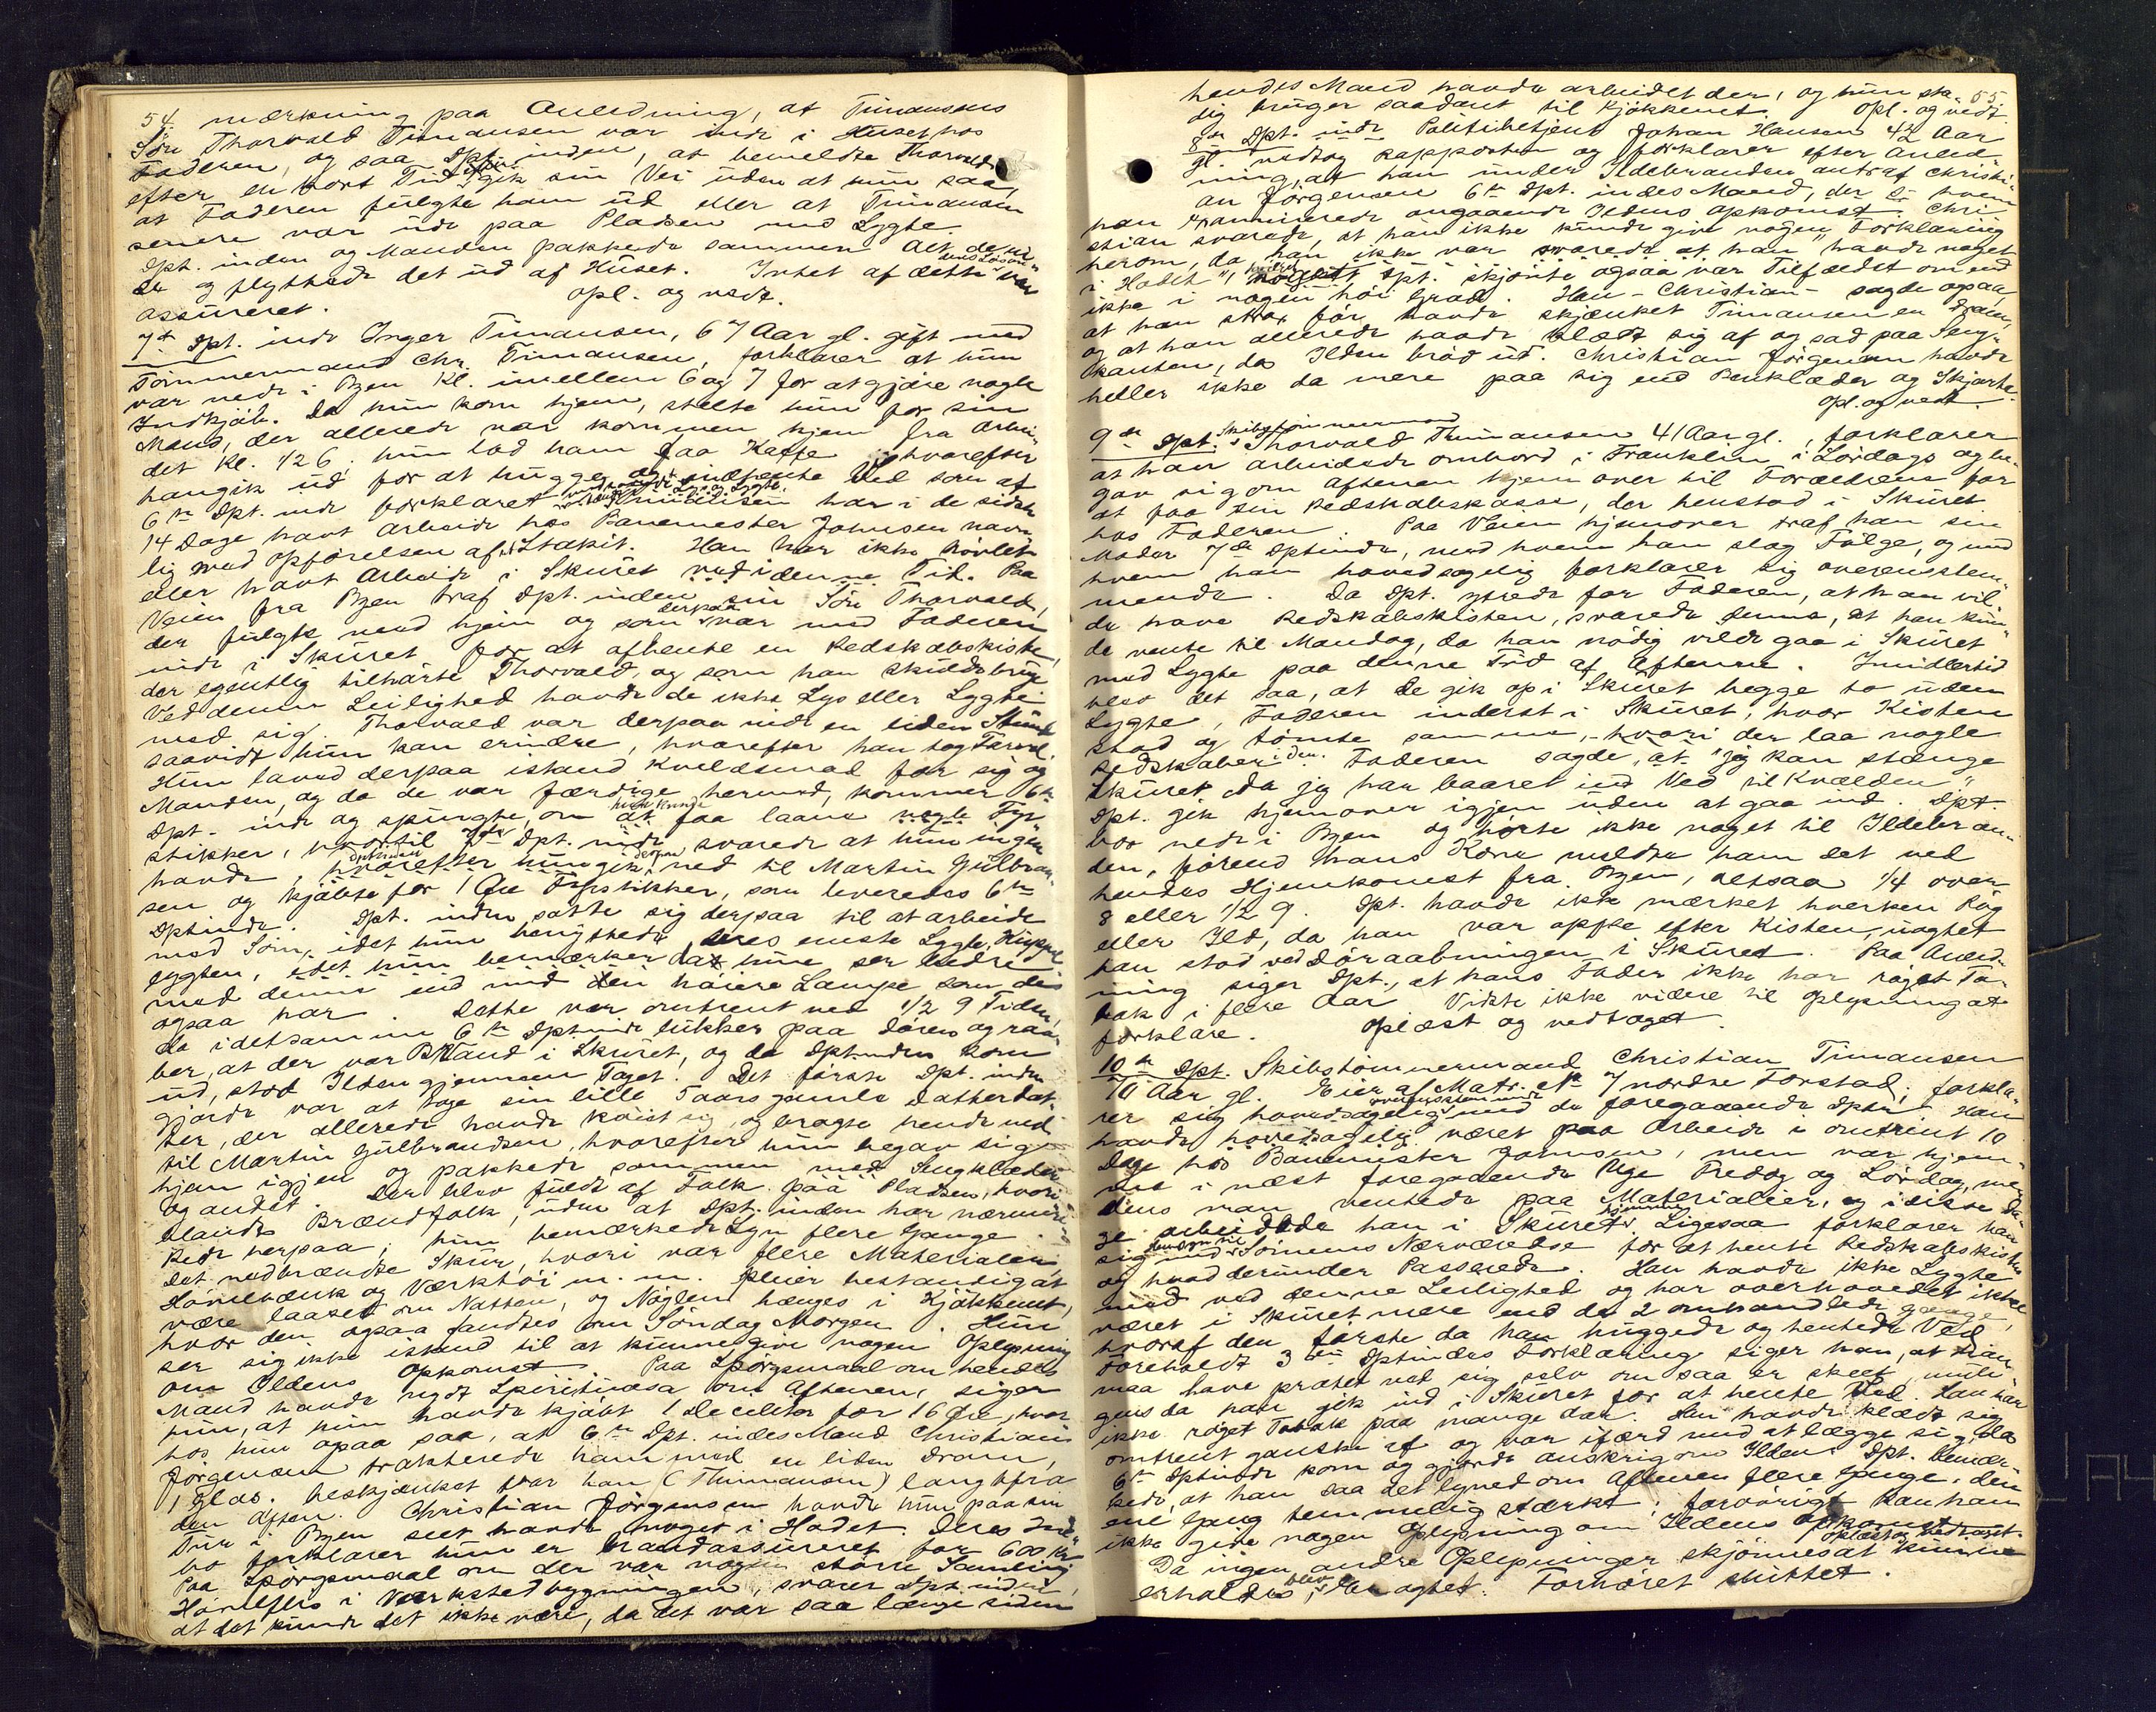 54 mærkning paa Anledning, at Timansens
Søn Thorvald Timansen var inde i Huset hos
Faderen, og saa Dpt. inden, at bemeldte Thorvald
efter en kort Tid gik sin Vei uden at hun saa,
at Faderen fulgte ham ud eller at Timansen
senere var ude paa Pladsen med Lygte.
Dpt. inden og Manden pakkede sammen Alt deres
og flyttede det ud af Huset. Intet af dette var
assureret. Opl. og vedt.
7de Dpt. inde Inger Timansen, 67 Aar gl. gift med
Tømmermand Chr. Timansen, forklarer at hun
var nede i Byen Kl. imellem 6 og 7 for at gjøre nogle
Indkjøb. Da hun kom hjem, stelte hun for sin
Mand, der allerede var kommen hjem fra Arbei-
det Kl. 1/2 6; hun lod ham faa Kaffe hvorefter
han gik ud for at hugge og indhente Ved som af
6te Dpt. inde forklaret Timansen har i de sidste
14 Dage havt Arbeide hos Banemester Johnsen navn-
lig med Opførelsen af et Stakit. Han har ikke høvlet
eller havt Arbeide i Skuret ved denne Tid. Paa
Veien fra Byen traf Dpt. inden sin Søn Thorvald,
der fulgte med hjem og som derpaa var med Faderen
inde i Skuret for at afhente en Redskabskiste,
der egentlig tilhørte Thorvald, og som han skulde bruge
Ved denne Leilighed havde de ikke Lys eller Lygte
med sig. Thorvald var derpaa inde en liden Stund
saavidt hun kan erindre, hvorefter han tog Farvel.
Hun laved derpaa istand Kveldsmad for sig og
Manden, og da de var færdige hermed, kommer 6te
Dpt. inde og spurgte, om hun kunde faa laane nogle Fyr-
stikker, hvortil 7de Dpt. inde svarede at hun ingen
havde, hvorefter hun gik ned til Martin Gulbran-
sen og kjøbte for 1 Øre Fyrstikker, som leveredes 6te
Dptinde. Dpt. inden satte sig derpaa til at arbeide
med Søm, idet hun benyttede deres eneste Lygte, Kuppel-
lygten, idet hun bemærker, at hun ser bedre
med denne end med den høiere Lampe som de
ogsaa har. Dette var omtrent ved 1/2 9 Tiden,
da i det samme 6te Dptinde bukker paa Døren og raa-
ber, at der var Brand i Skuret, og da Dptinden kom
ud, stod Ilden gjennem Taget. Det første Dpt. inden
gjorde var at tage sin lille Faars gamle Datterdat-
ter, der allerede havde kvist sig, og bragte hende ned
til Martin Gulbrandsen, hvorefter hun begav sig
hjem igjen og pakkede sammen med Sengklæder
og andet. Der blev fuldt af Folk paa Pladsen, hvori-
blandt Brandfolk, uden at Dpt. inden har nærmere
Rede herpaa; hun bemærkede Lyn flere Gange.
Det nedbrændte Skur, hvori var flere Materialer
Høvelbænk og Værktøi m. m. pleier bestandig at
være laaset om Natten, og Nøglen hænges i Kjøkkenet,
hvor den ogsaa fandtes om Søndag Morgen. Hun
ser sig ikke istand til at kunne give nogen Oplysning
om Ildens Opkomst. Paa Spørgsmaal om hendes
Mand havde nydt Spirituosa om Aftenen, siger
hun, at hun havde kjøbt 1 Deciliter for 16 Øre, hvor-
hos hun ogsaa saa, at 6te Dpt. indes Mand Christian
Jørgensen trakterede ham med en liden Dram,
1 Glas. beskjænket var han (Thimansen) langtfra
den Aften. Christian Jørgensen havde hun paa sin
Tur i Byen seet havde noget i Hodet. Deres Ind-
bo forklarer hun er brandassureret for 600 Kr
Paa Spørgsmaal om der var nogen større Samling
Høvelflis i Værkstedbygningen, svarer Dpt. inden,
at det kunde det ikke være, da det var saa længe siden
55
hendes Mand havde arbeidet der, og hun sta-
dig bruger saadant til Kjøkkenet. Opl. og vedt.
8de Dpt. inde Politibetjent Johan Hansen 42 Aar
gl. vedtog Rapporten og forklarer efter Anled-
ning, at han under Ildebranden antraf Christi-
an Jørgensen 6te Dpt. indes Mand, der
han examinerede angaaende Ildens Opkomst. Chri-
stian svarede, at han ikke kunde give nogen Forklaring
herom, da han ikke var svarede at han "havde noget
i Hodet", hvilket Dpt. skjønte ogsaa var Tilfældet om end
ikke i nogen høi Grad. Han – Christian – sagde ogsaa,
at han strax før havde skjænket Timansen en Dram,
og at han allerede havde klædt sig af og sad paa Seng-
kanten, da Ilden brød ud. Christian Jørgensen havde
heller ikke da mere paa sig end Benklæder og Skjorte.
Opl. og vedt.
9de Dpt. Skibstømmermand Thorvald Thimansen 41 Aar gl., forklarer
at han arbeidede ombord i Franklin i Lørdags og be-
gav sig om Aftenen hjem over til Forældrene for
at faa sin Redskabskasse, der henstod i Skuret
hos Faderen. Paa Veien hjemover traf han sin
Moder 7de Dptinde, med hvem han slog Følge, og med
hvem han hovedsagelig forklarer sig overensstem-
mende. Da Dpt. ytrede for Faderen, at han vil-
de have Redskabskisten, svarede denne, at han kun-
de vente til Mandag, da han nødig vilde gaa i Skuret
med Lygte paa denne Tid af Aftenen. Imidlertid
blev det saa, at de gik op i Skuret begge to uden
Lygte, Faderen inderst i Skuret, hvor Kisten
stod og tømte samme, hvori der laa nogle
Redskaber i den. Faderen sagde, at "jeg kan stænge
Skuret da jeg har baaret ind Ved til Kvælden"
Dpt. gik hjemover igjen uden at gaa ind. Dpt.
bor nede i Byen og hørte ikke noget til Ildebran-
den, førend hans Kone meldte ham det ved
hendes Hjemkomst fra Byen, altsaa 1/4 over
8 eller 1/2 9. Dpt. havde ikke mærket hverken Røg
eller Ild, da han var oppe efter Kisten, uagtet
han stod ved Døraabningen i Skuret. Paa Anled-
ning siger Dpt., at hans Fader ikke har røget To-
bak i flere Aar Vidste ikke videre til Oplysning at
forklare. Oplæst og vedtaget.
10de Dpt. Skibstømmermand Christian Timansen
70 Aar gl. Eier af Matr. No 7 nordre Forstad; forkla-
rer sig hovedsagelig overensstemmende med de foregaaende Dptr. Han
havde hovedsagelig været paa Arbeide i omtrent 10
Dage hos Banemester Johnsen, men var hjem-
me i næst foregaaende Uge Fredag og Lørdag, me-
dens man ventede paa Materialier, og i disse Da-
ge arbeidede han i Skuret. Ligesaa forklarer han
sig med Sønnens Nærværelse for at hente Redskabskisten
og hvad derunder Passerede. Han havde ikke Lygte
med ved denne Leilighed og har overhovedet ikke
været i Skuret mere end de 2 omhandlede Gange,
hvoraf den første da han huggede og hentede Ved
Foreholdt 3die Dptindes Forklaring siger han, at han
maa have pratet ved sig selv om saa er skeet, muli-
gens da han gik ind i Skuret for at hente Ved. Han har
ikke røget Tobak paa mange Aar. Han havde klædt sig
omtrent ganske af og var ifærd med at lægge sig, da
6te Dptinde kom og gjorde Anskrig om Ilden. Dpt. bemær-
kede, at han saa det lyned om Aftenen flere Gange, den
ene Gang temmelig stærkt; forøvrigt kan han
ikke give nogen Oplysning om Ildens Opkomst. Oplæst og vedtaget.
Da ingen andre Oplysninger skjønnes at kunne
erholdes, blev Forhøret sluttet.